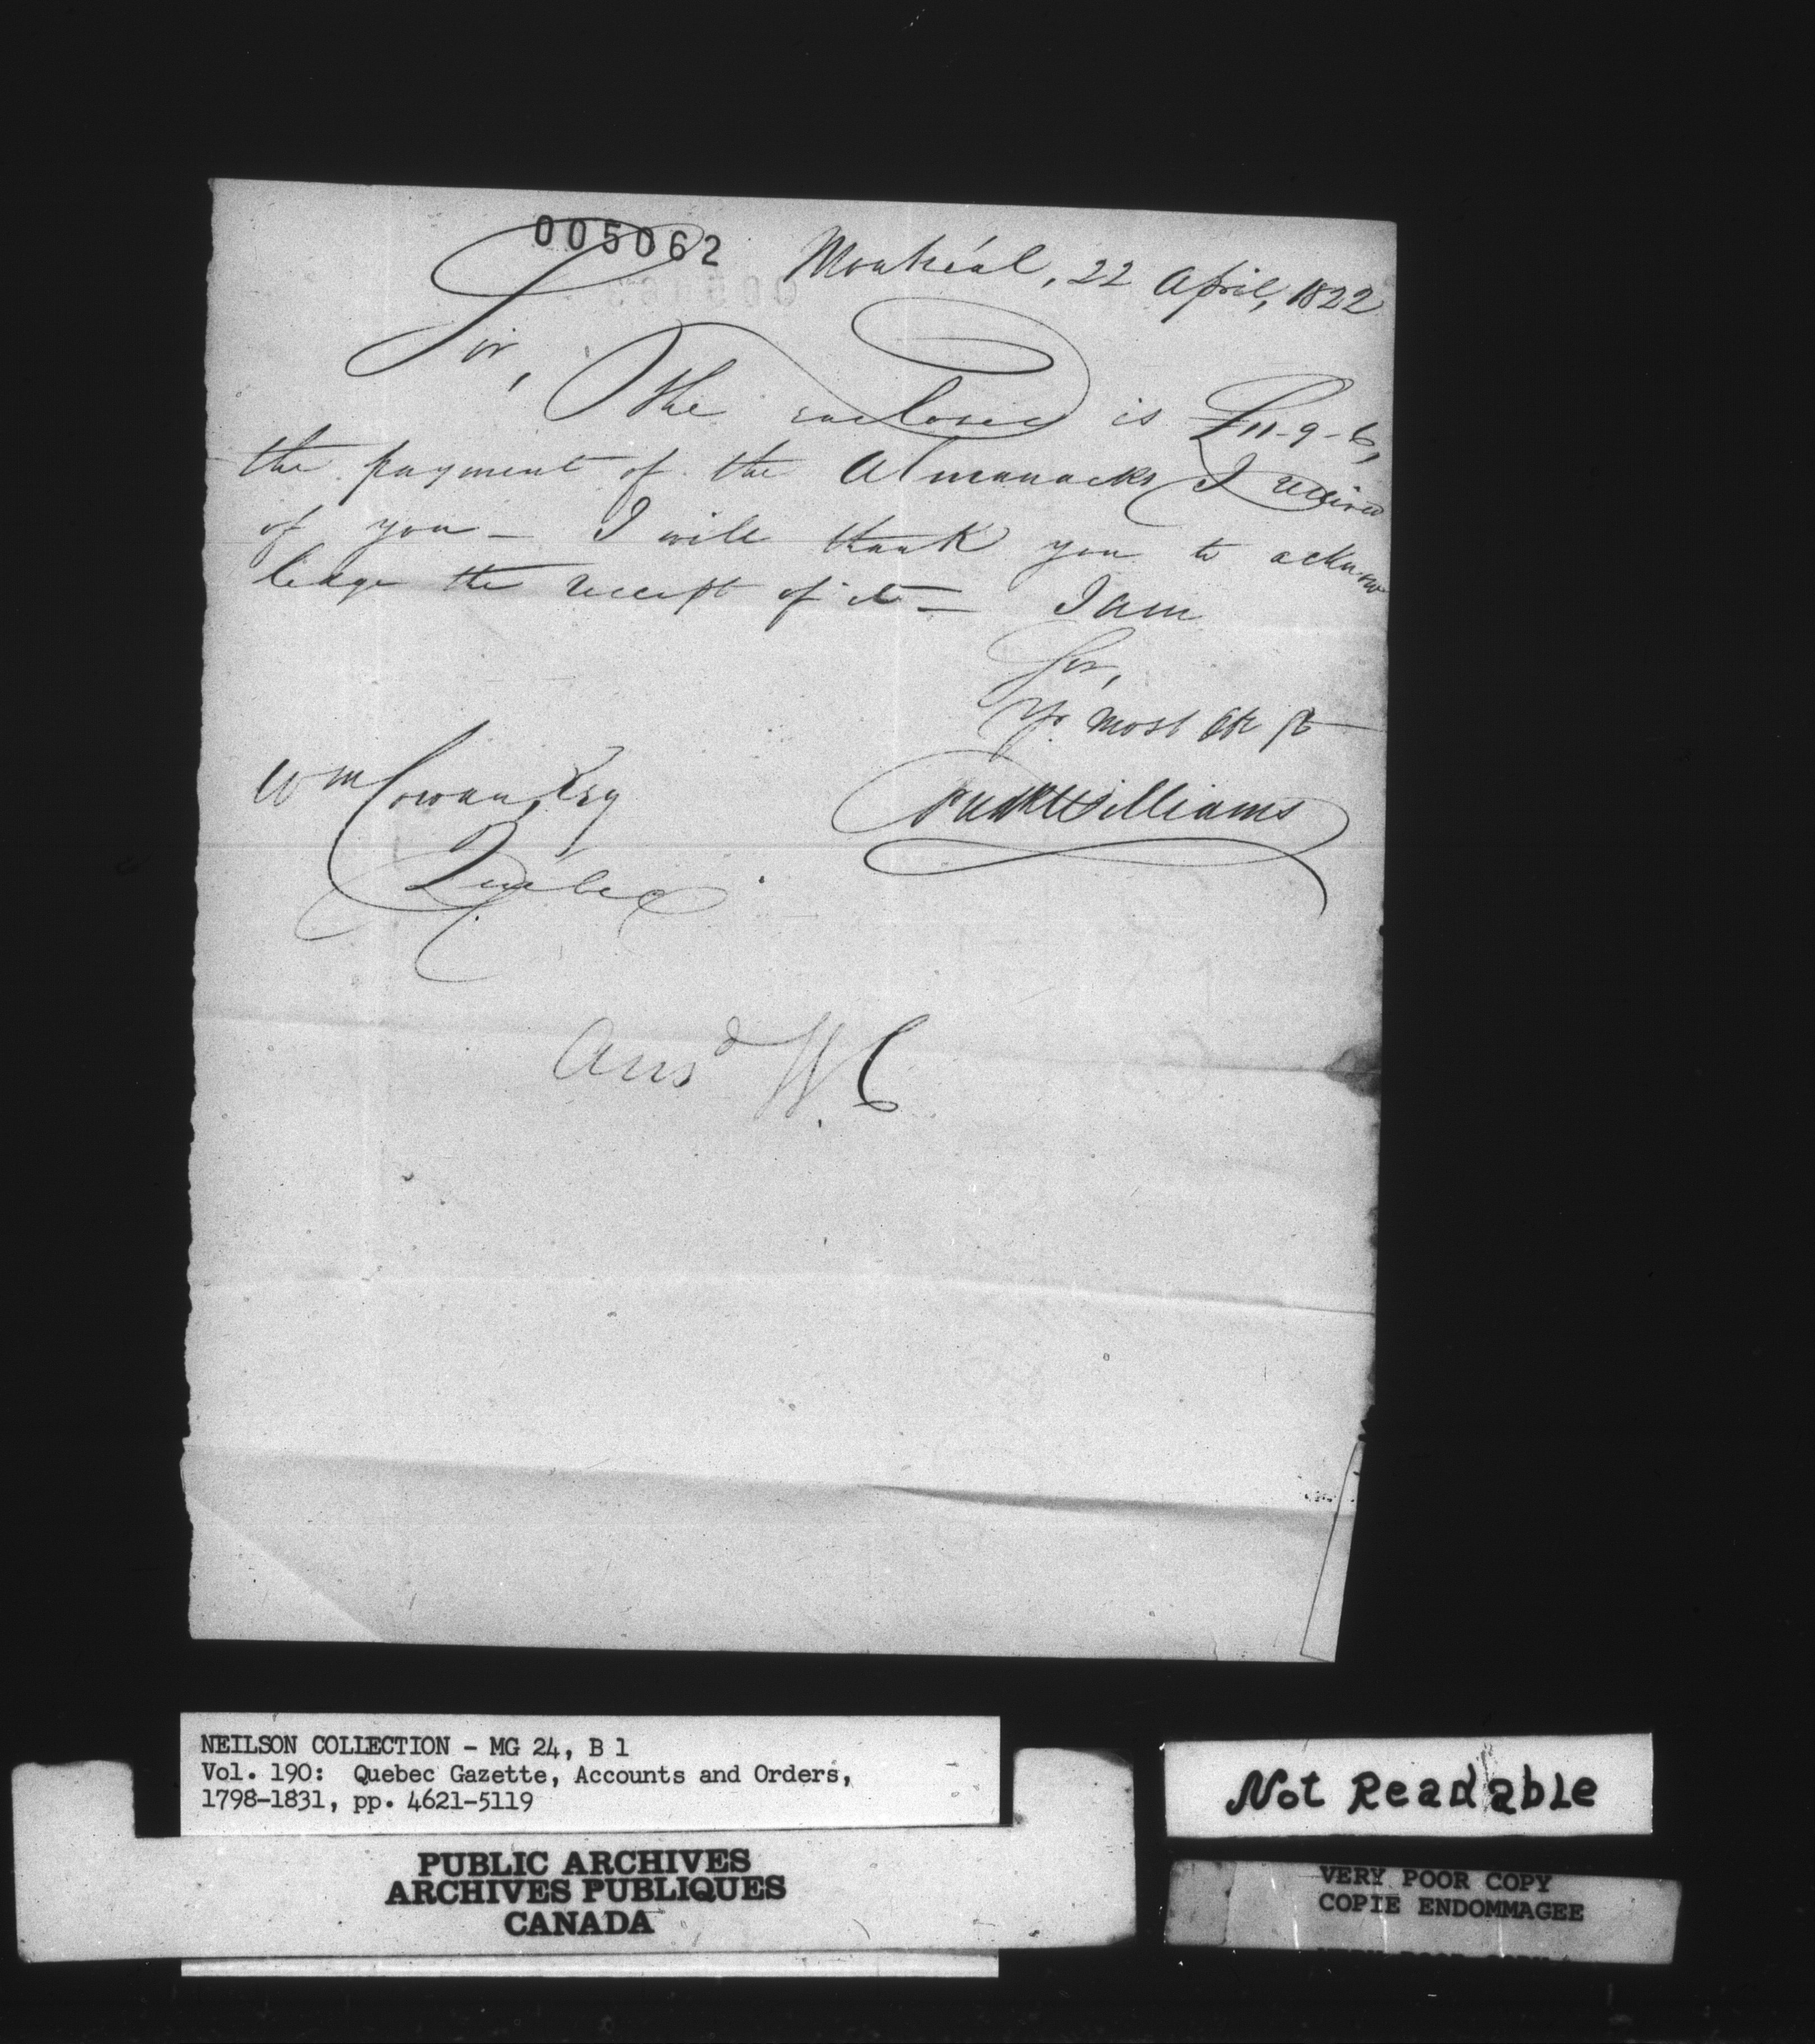 005062
Montréal, 22 April, 1822
Sir,
The enclosed is £11-9-6,
the payment of the Almanacks I received
of you — I will thank you to acknow
ledge the receipt of it — I am
Sir,
Yr. most
Wm Cowan, Esq
Williams
Quebec
Ansd W.C
NEILSON COLLECTION - MG 24, B 1
Vol. 190: Quebec Gazette, Accounts and Orders,
1798-1831, pp. 4621-5119
PUBLIC ARCHIVES
ARCHIVES PUBLIQUES
CANADA
Not Readable
VERY POOR COPY
COPIE ENDOMMAGEE